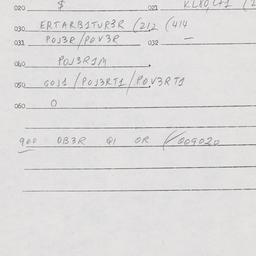 020 $ 021 V.L80,L71 (2
030 ERTARB1TUR3R (212 (414
031 POJ3R/POV3R 032 —
040 POJ3R1M .
050 GOJ1/POJ3RT1/POV3RT1
060 0
900 OB3R Q1 OR √009020